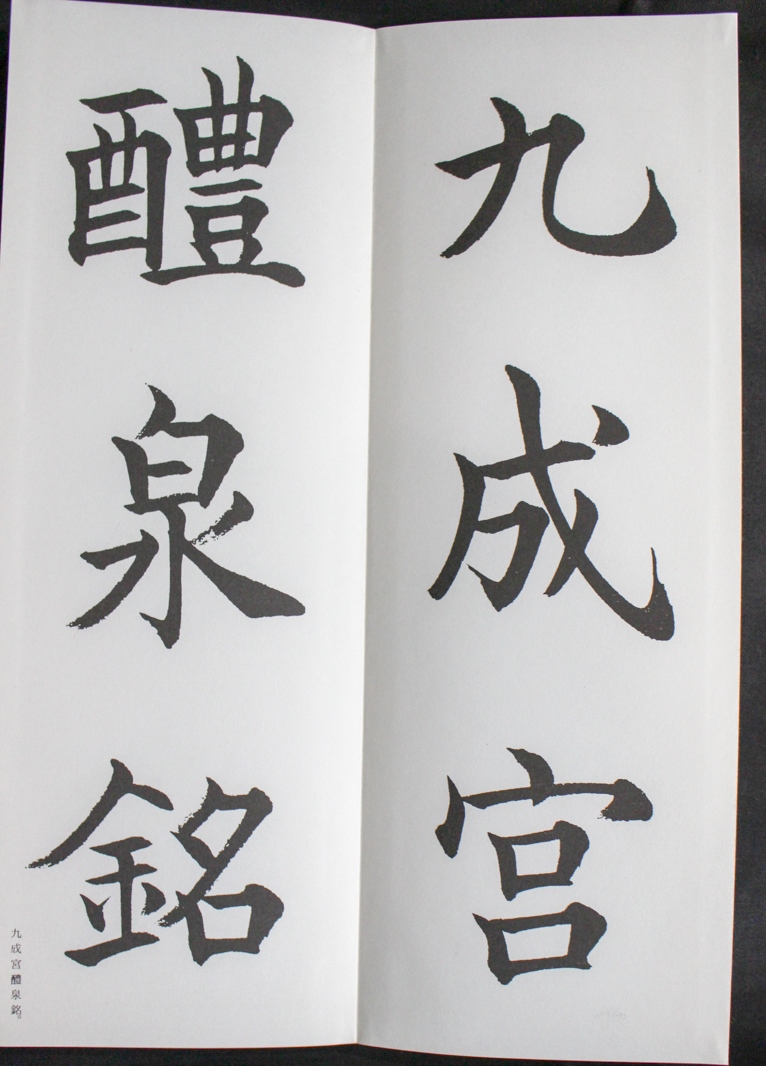 九成宮
醴泉銘
九成宮醴泉銘。